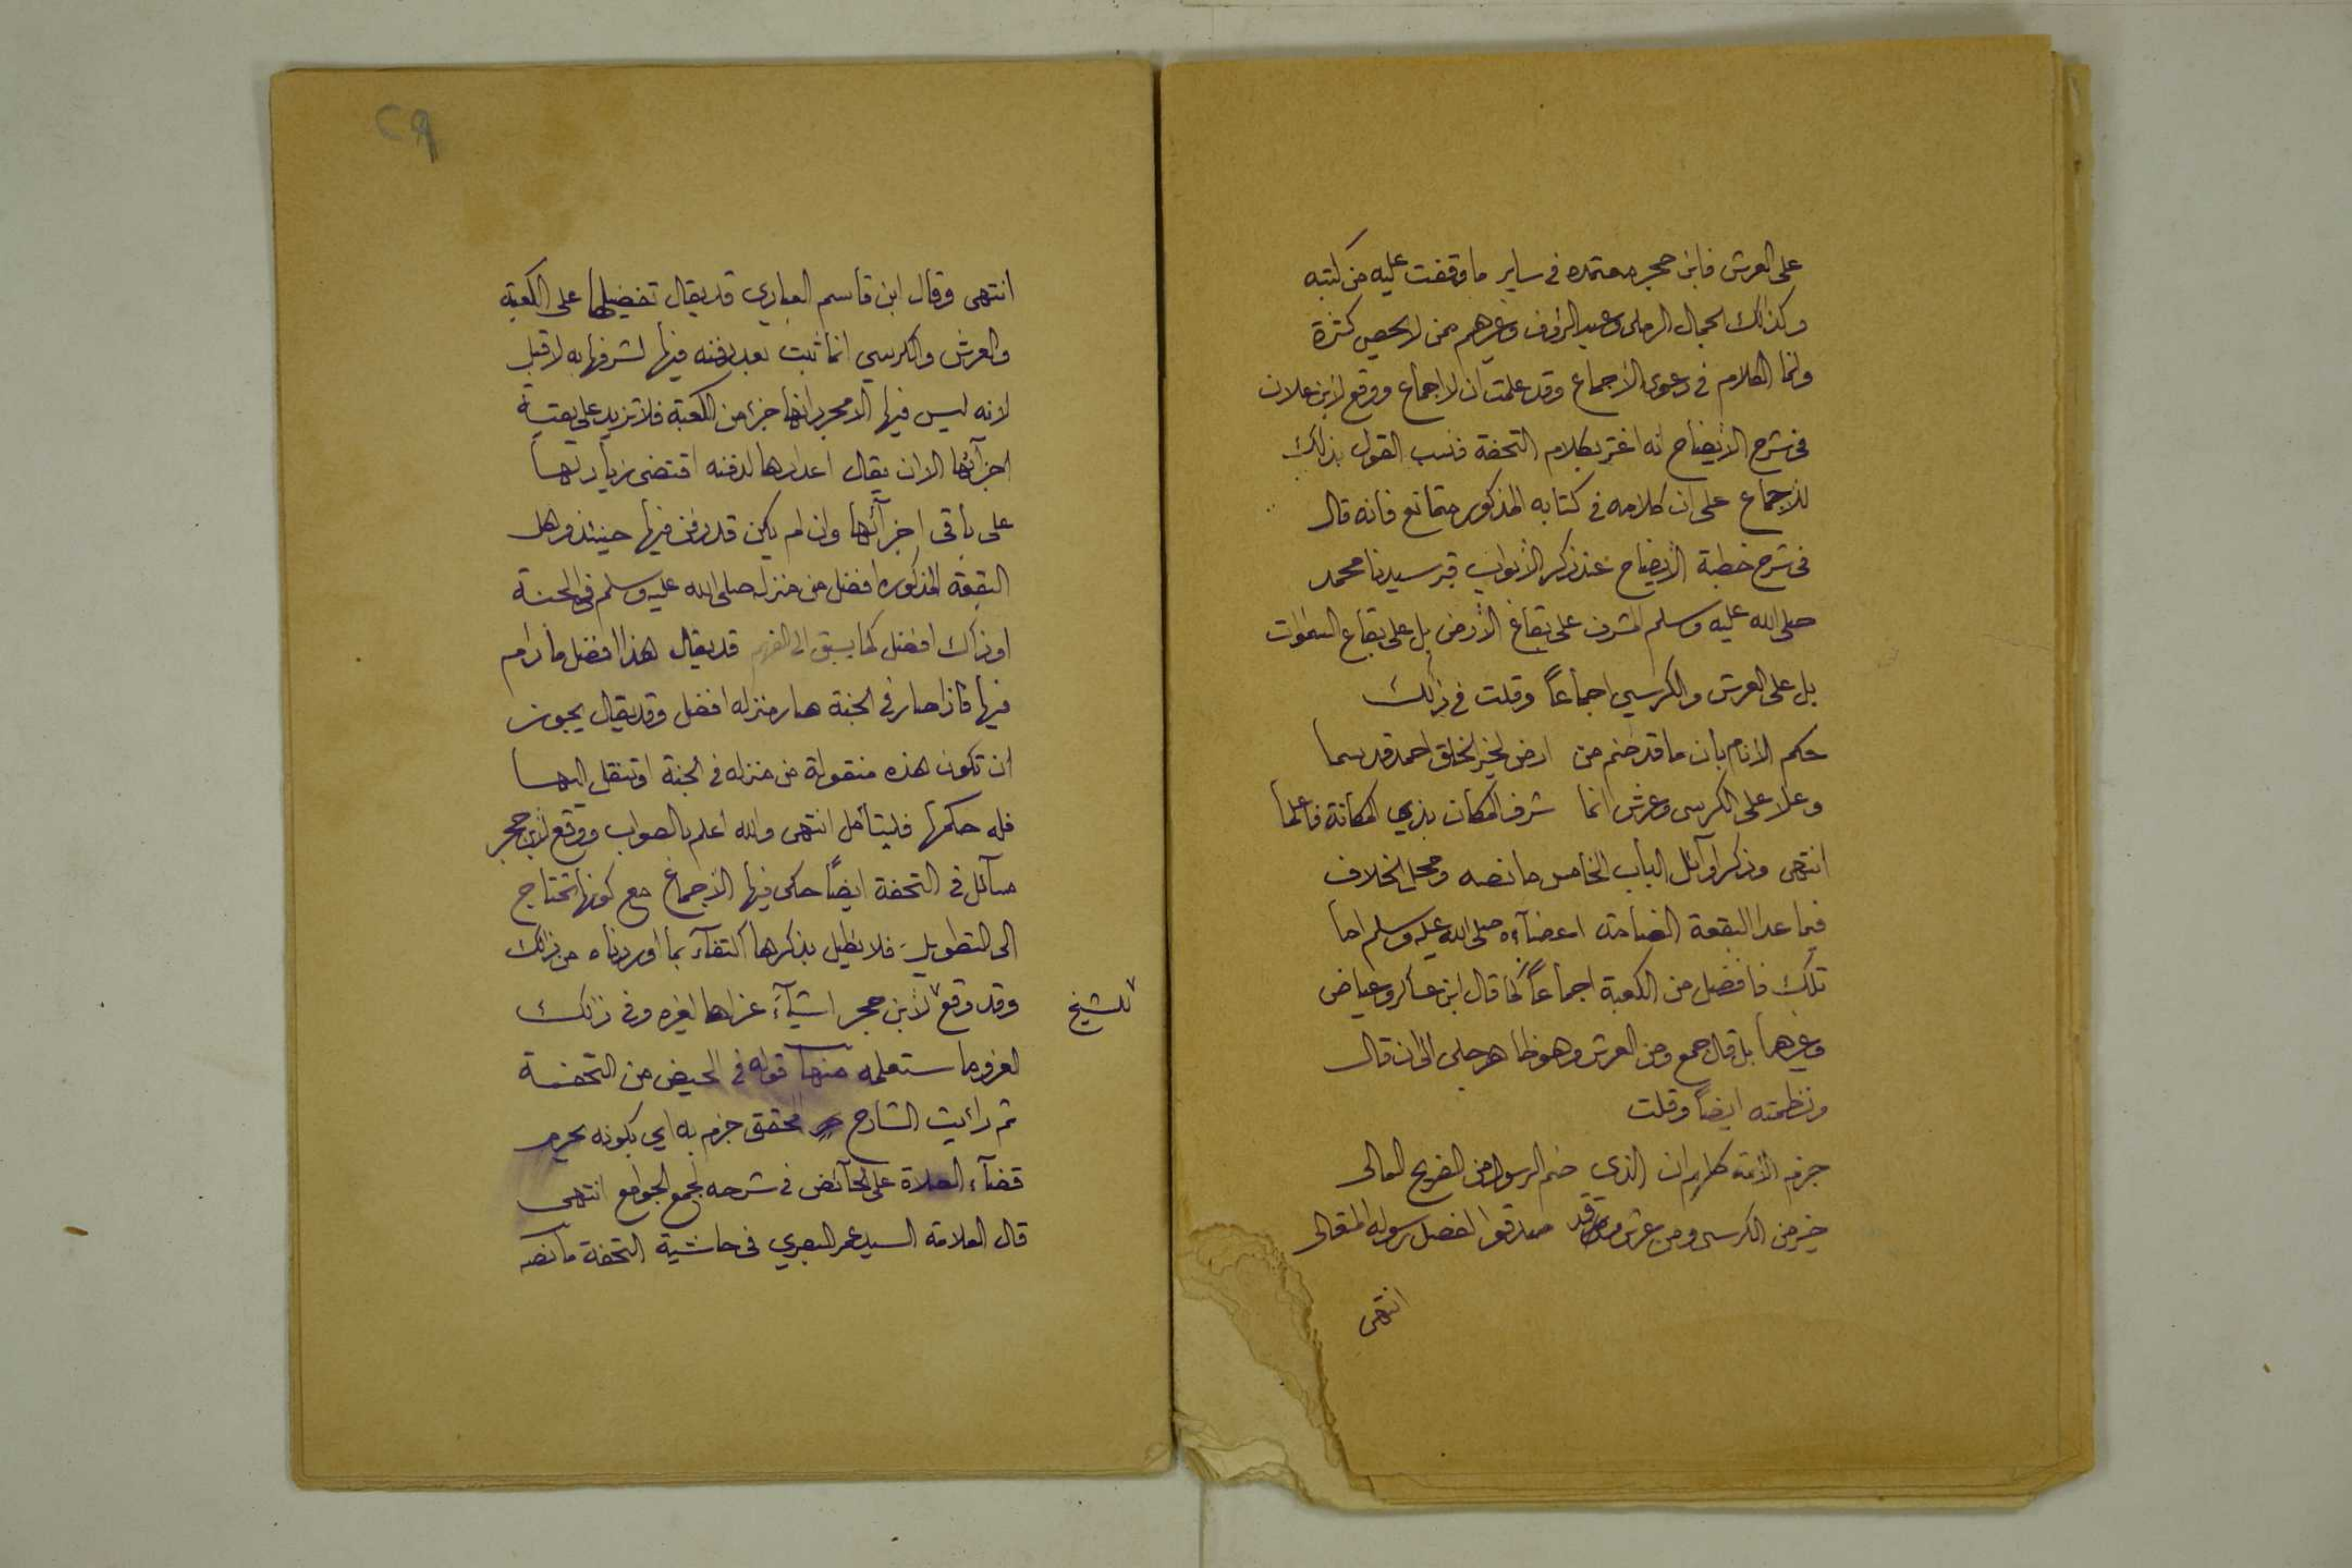 على العرش فابن حجر معتمده في ساير ما وقفت عليه من كتبه
وكذلك الجمال الرملى وعبد الرؤف وغيرهم ممن لا يحصى كثرة
وانما الكلام في دعوى الاجماع وقد علمت ان لا اجماع ووقع لابن علان
في شرح الايضاح انه اغتر بكلام التحفة فنسب القول بذلك
للاجماع على ان كلامه في كتابه المذكور متمانع فانه قال
في شرح خطبة الايضاح عند ذكر الابواب قبر سيدنا محمد
صلى الله عليه وسلم المشرف على بقاع الأرض بل على بقاع السموات
بل على العرش والكرسي اجماعاً وقلت في ذلك
حكم الانام بان ما قد ضم من ارض لخير الخلق احمد قد سما
وعلا على الكرسى وعرش انما شرف المكان بذي المكانة فاعلما
انتهى وذكر اوآئل الباب الخامس ما نصه ومحل الخلاف
فيما عدا البقعة الضامة اعضآءه صلى الله عليه وسلم اما
تلك فافضل من الكعبة اجماعاً كما قال ابن عساكر وعياض
وغيرهما بل قال جمع ومن العرش وهو ظاهر جلى الى ان قال
ونظمته ايضاً وقلت
جزم الأئمة كلهم ان الذى ضم الرسول من الضريح العالى
خير من الكرسى ومن عرش وقد صدقوا لفضل رسوله المتعالى
انتهى
٢٩
انتهى وقال ابن قاسم العبادي قد يقال تفضيلها على الكعبة
والعرش والكرسي انما ثبت بعد دفنه فيها لشرفها به لا قبل
لانه ليس فيها الا مجرد انها جزء من الكعبة فلا تزيد على بقية
اجزآئها الا ان يقال اعدادها لدفنه اقتضى زيادتها
على باقى اجزآئها وان لم يكن قد دفن فيها حينئذ وهل
البقعة المذكورة افضل من منزله صلى الله عليه وسلم في الجنة
او ذاك افضل كما يسبق الى الفهم قد يقال هذا افضل ما دام
فيها فاذا صار في الجنة صار منزله افضل وقد يقال يجوز
ان تكون هذه منقولة من منزله في الجنة او تنقل اليها
فله حكمها فليتأمل انتهى والله اعلم بالصواب ووقع لابن حجر
مسآئل في التحفة ايضاً حكى فيها الاجماع مع كونها تحتاج
الى التطويل فلا نطيل بذكرها اكتفآء بما اوردناه من ذلك
وقد وقع لابن حجر اشيآء عزاها لغيره وفى ذلك
للشيخ
لغزو ما ستعلمه منها قوله في الحيض من التحفة
ثم رأيت الشارح المحقق جزم به اي بكونه يحرم
قضآء الصلاة على الحآئض في شرحه لجمع الجوامع انتهى
قال العلامة السيد عمر البصري في حاشية التحفة ما نصه